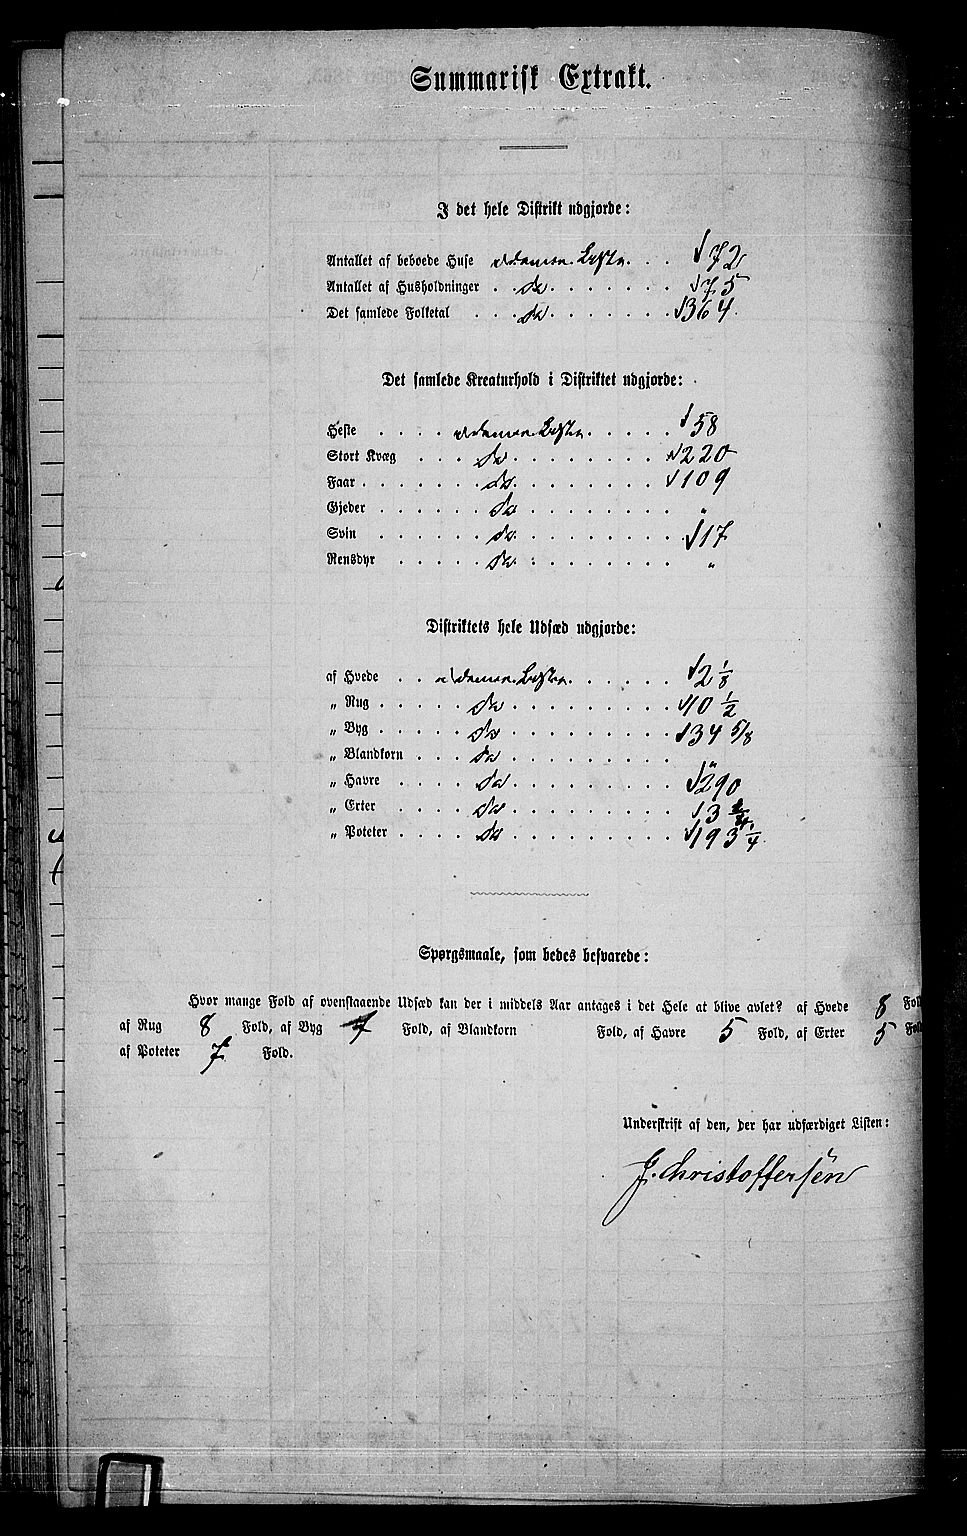 Summarisk Extrakt.
I det hele Distrikt udgjorde:
Antallet af beboede Huse . . . 72
Antallet af Husholdninger . . do . . . . . . . 75
Det samlede Folketal . . . . do . . . . . . . 364.
Det samlede Kreaturhold i Distriktet udgjorde:
Heste . . . . . . . . . 58
Stort Kvæg . . . . do . . . . . . . . 220
Faar . . . . . . . do . . . . . . . . 109
Gjeder . . . . . . do . . . . . . . . "
Svin . . . . . . do . . . . . . . . 17
Rensdyr . . . . . do . . . . . . . . "
Distriktets hele Udsæd udgjorde:
af Hvede . . . . . . . . 2 1/8
„ Rug . . . . . do . . . . . . . . 10 1/2
„ Byg . . . . . do . . . . . . . . 34 5/8
„ Blandkorn . . . do . . . . . . . . "
„ Havre . . . . do . . . . . . . . 290
„ Erter . . . . do . . . . . . . . 3
„ Poteter . . . . do . . . . . . . . 193 1/4
Spørgsmaale, som bedes besvarede:
Hvor mange Fold af ovenstaaende Udsæd kan der i middels Aar antages i det Hele at blive avlet? af Hvede 8 Fold
af Rug 8 Fold, af Byg 7 Fold, af Blandkorn Fold, af Havre 5 Fold, af Erter 5 Fold
af Poteter 7 Fold.
Underskrift af den, der har udfærdiget Listen:
J. Christoffersen